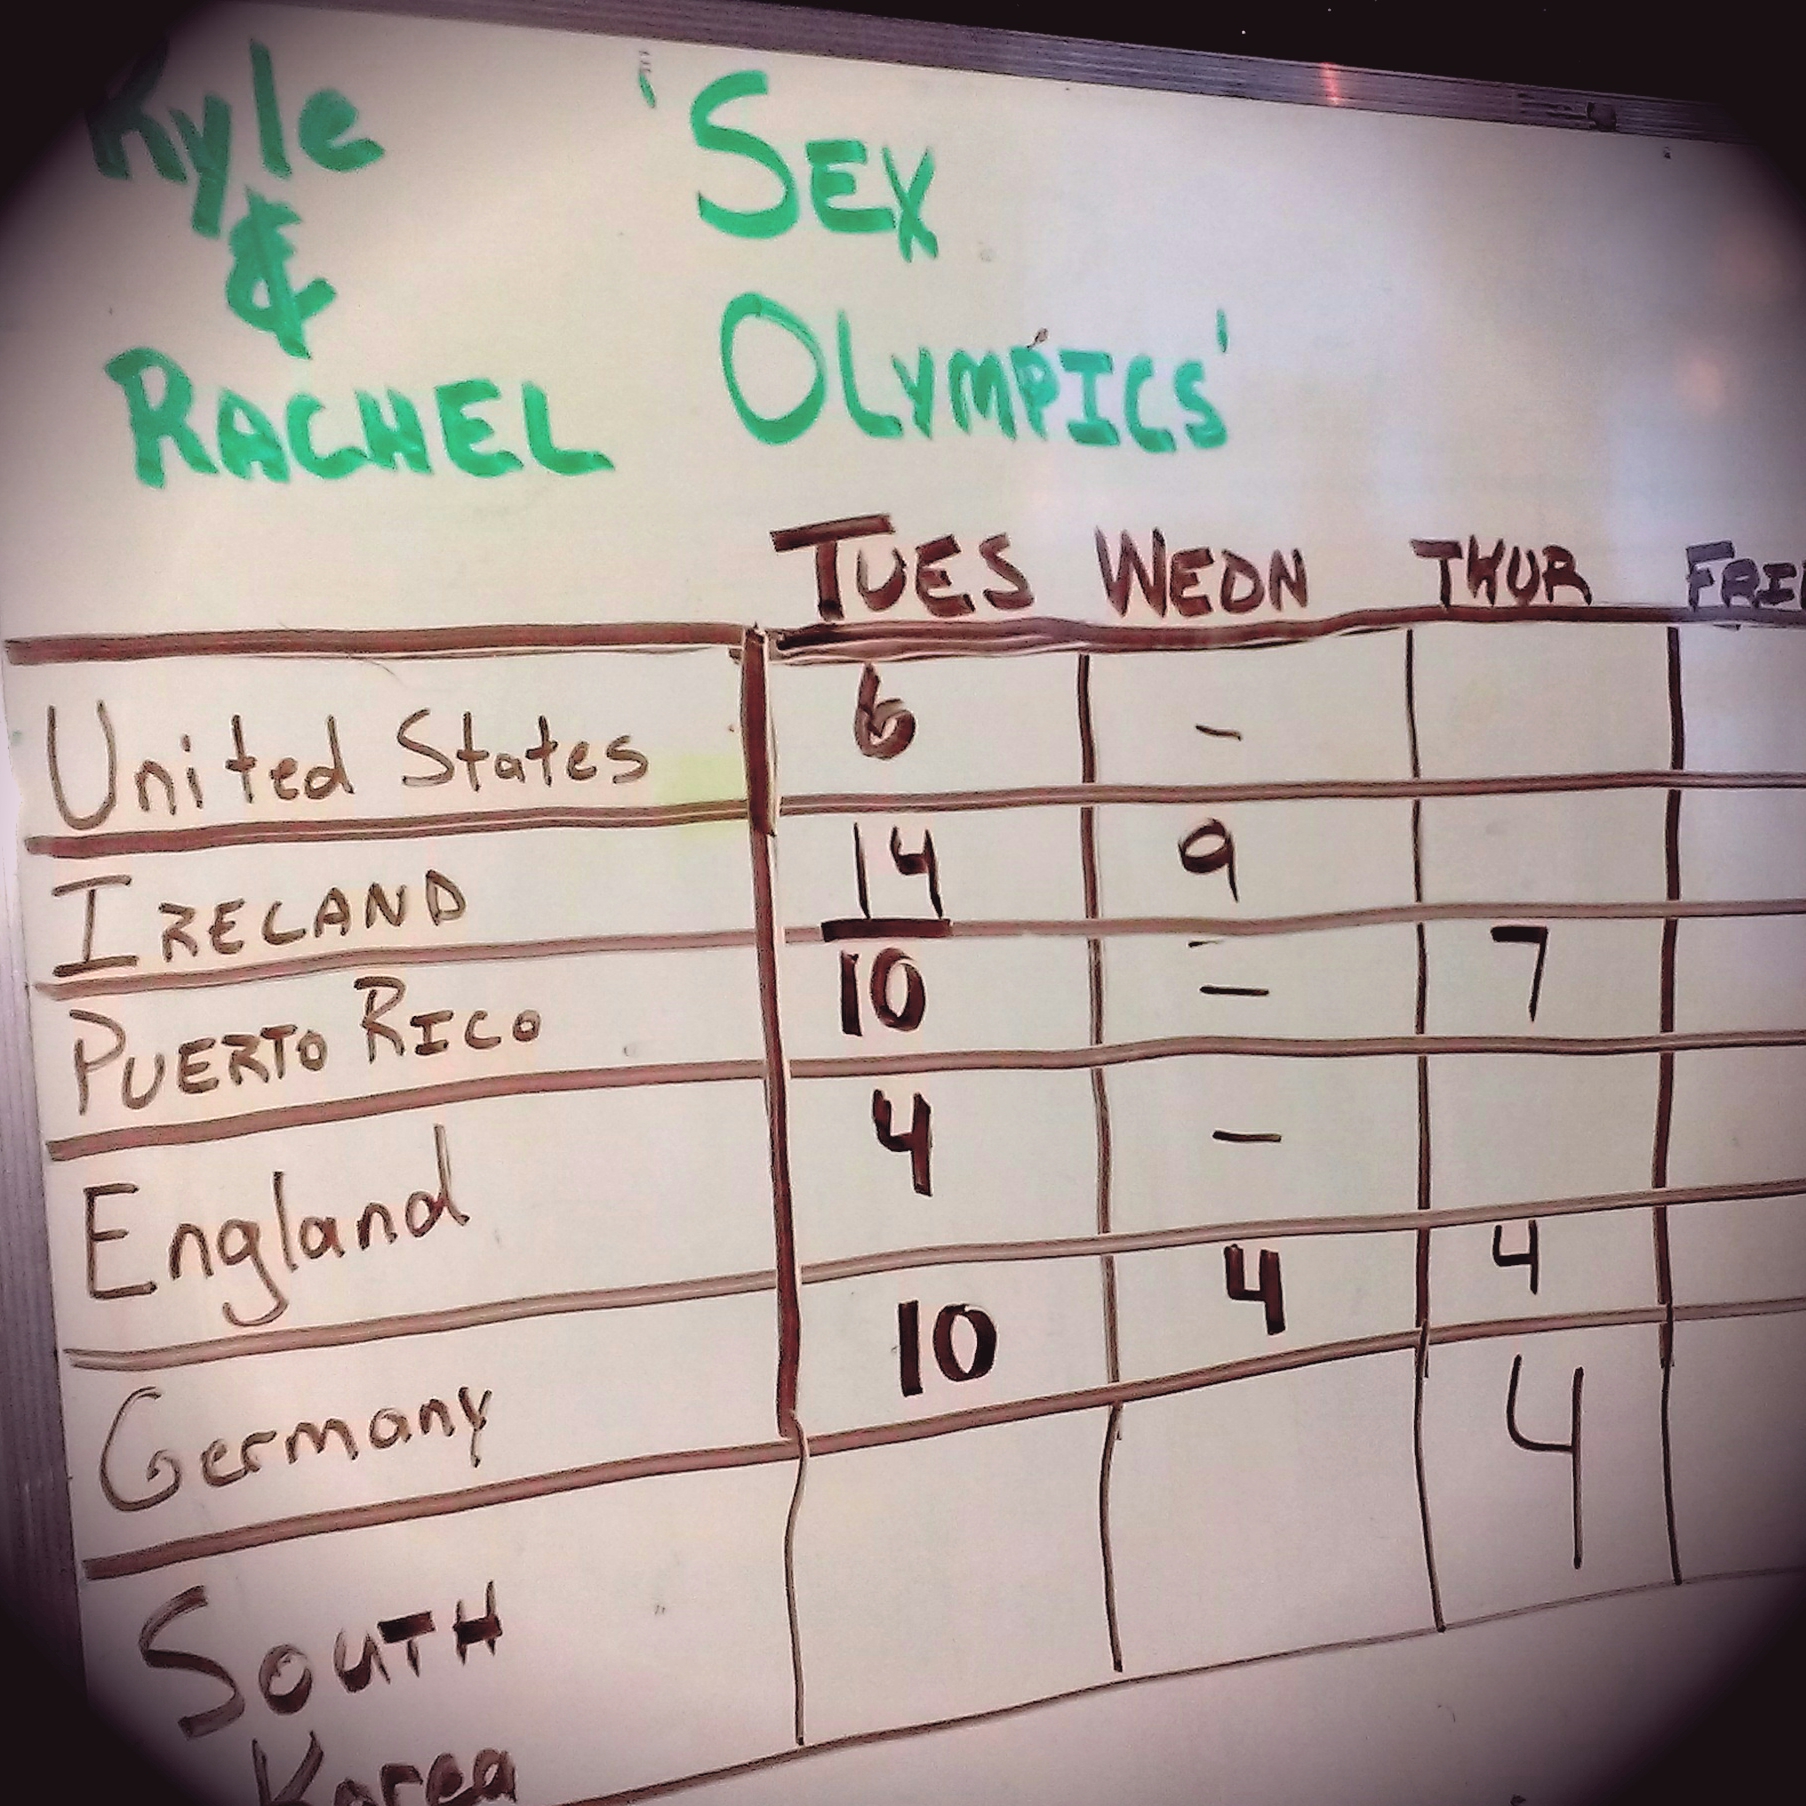 Kyle
&
RACHEL
'SEX
OLYMPICS'
TUES WEDN THUR FRI
United States 6 -
IRELAND 14 9
PUERTO RICO 10 - 7
England 4 -
Germany 10 4 4
SOUTH 4
Korea